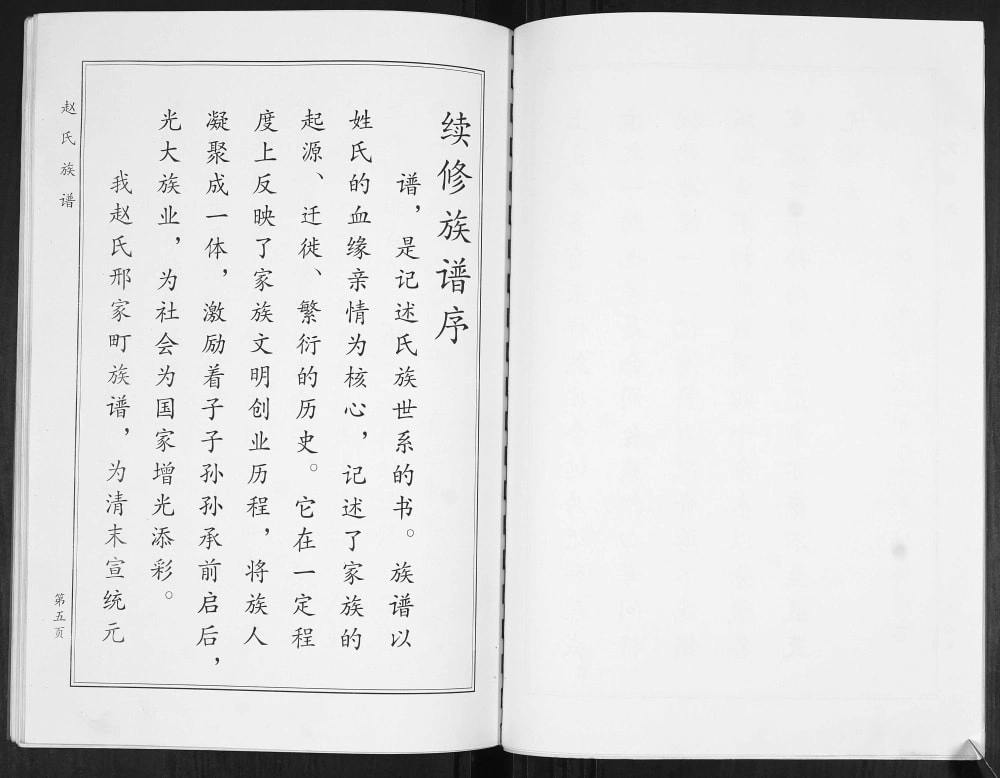 续修族谱序
谱，是记述氏族世系的书。族谱以
姓氏的血缘亲情为核心，记述了家族的
起源、迁徙、繁衍的历史。它在一定程
度上反映了家族文明创业历程，将族人
凝聚成一体，激励着子子孙孙承前启后，
光大族业，为社会为国家增光添彩。
我赵氏邢家町族谱，为清末宣统元
赵氏族谱
第五页